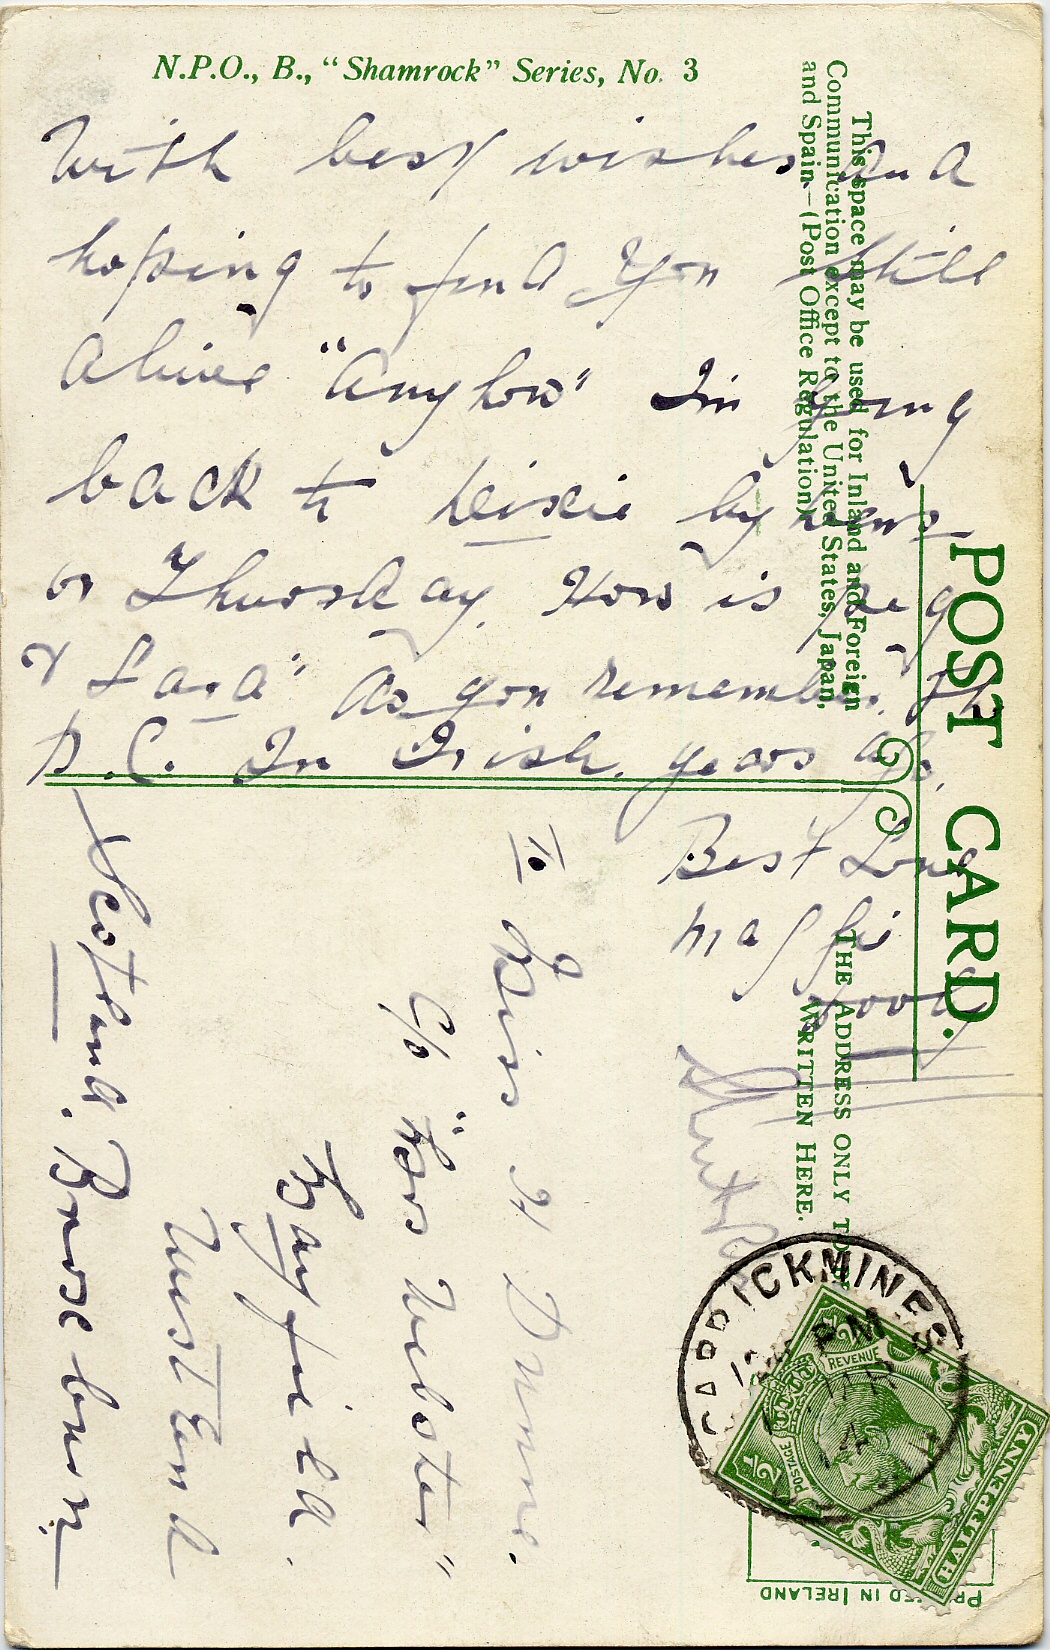 N.P.O., B., "Shamrock" Series, No. 3
With best wishes and
hoping to find you still
alive "Anyhow" Im going
back to by
or Thursday. How is Peg
& As you remember. The
P.C. In Irish. years ago.
Best Love
POST CARD.
This space may be used for Inland and Foreign
Communication except to the United States, Japan,
and Spain—(Post Office Regulation).
THE ADDRESS ONLY TO BE
WRITTEN HERE.
To Miss H Dunne.
C/o "Mrs Webster"
Bayfield.
West End
Scotland. Broseburn
CARRICKMINES
PM
POSTAGE
REVENUE
1/2 D
HALFPENNY
PRINTED IN IRELAND